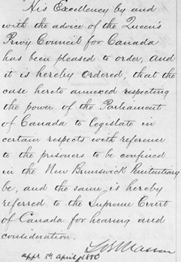 His Excellency by and
with the advice of the Queen's
Privy Council for Canada
has been pleased to order, and
it is hereby ordered, that the
case hereto annexed respecting
the power of the Parliament
of Canada to legislate in
certain respects with reference
to the prisoners to be confined
in the New Brunswick Penitentiary
be, and the same is hereby
referred to the Supreme Court
of Canada for hearing and
consideration.
April 1880